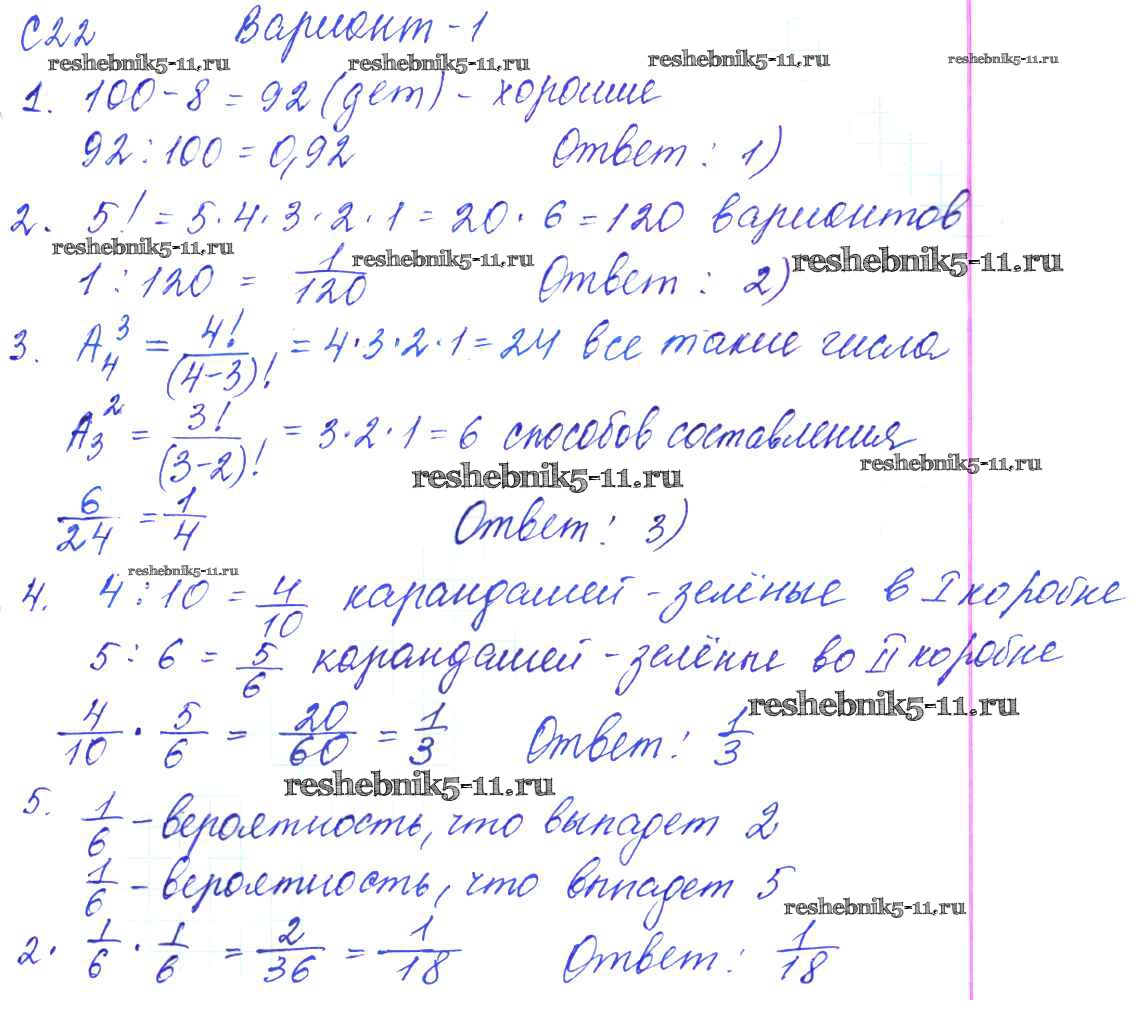 С22 Вариант-1
reshebnik5-11.ru reshebnik5-11.ru reshebnik5-11.ru reshebnik5-11.ru
1. 100-8=92 (дет) - хорошие
92:100=0,92 Ответ: 1)
2. 5!=5·4·3·2·1=20·6=120 вариантов
reshebnik5-11.ru reshebnik5-11.ru reshebnik5-11.ru
1:120 = 1/120 Ответ: 2)
3. A₄³ = 4!/(4-3)! = 4·3·2·1=24 все такие числа
A₃² = 3!/(3-2)! = 3·2·1=6 способов составления
reshebnik5-11.ru reshebnik5-11.ru
6/24 = 1/4 Ответ: 3)
reshebnik5-11.ru
4. 4:10 = 4/10 карандашей - зелёные в I коробке
5:6 = 5/6 карандашей - зелёные во II коробке
reshebnik5-11.ru
4/10 · 5/6 = 20/60 = 1/3 Ответ: 1/3
reshebnik5-11.ru
5. 1/6 - вероятность, что выпадет 2
1/6 - вероятность, что выпадет 5
reshebnik5-11.ru
2· 1/6 · 1/6 = 2/36 = 1/18 Ответ: 1/18